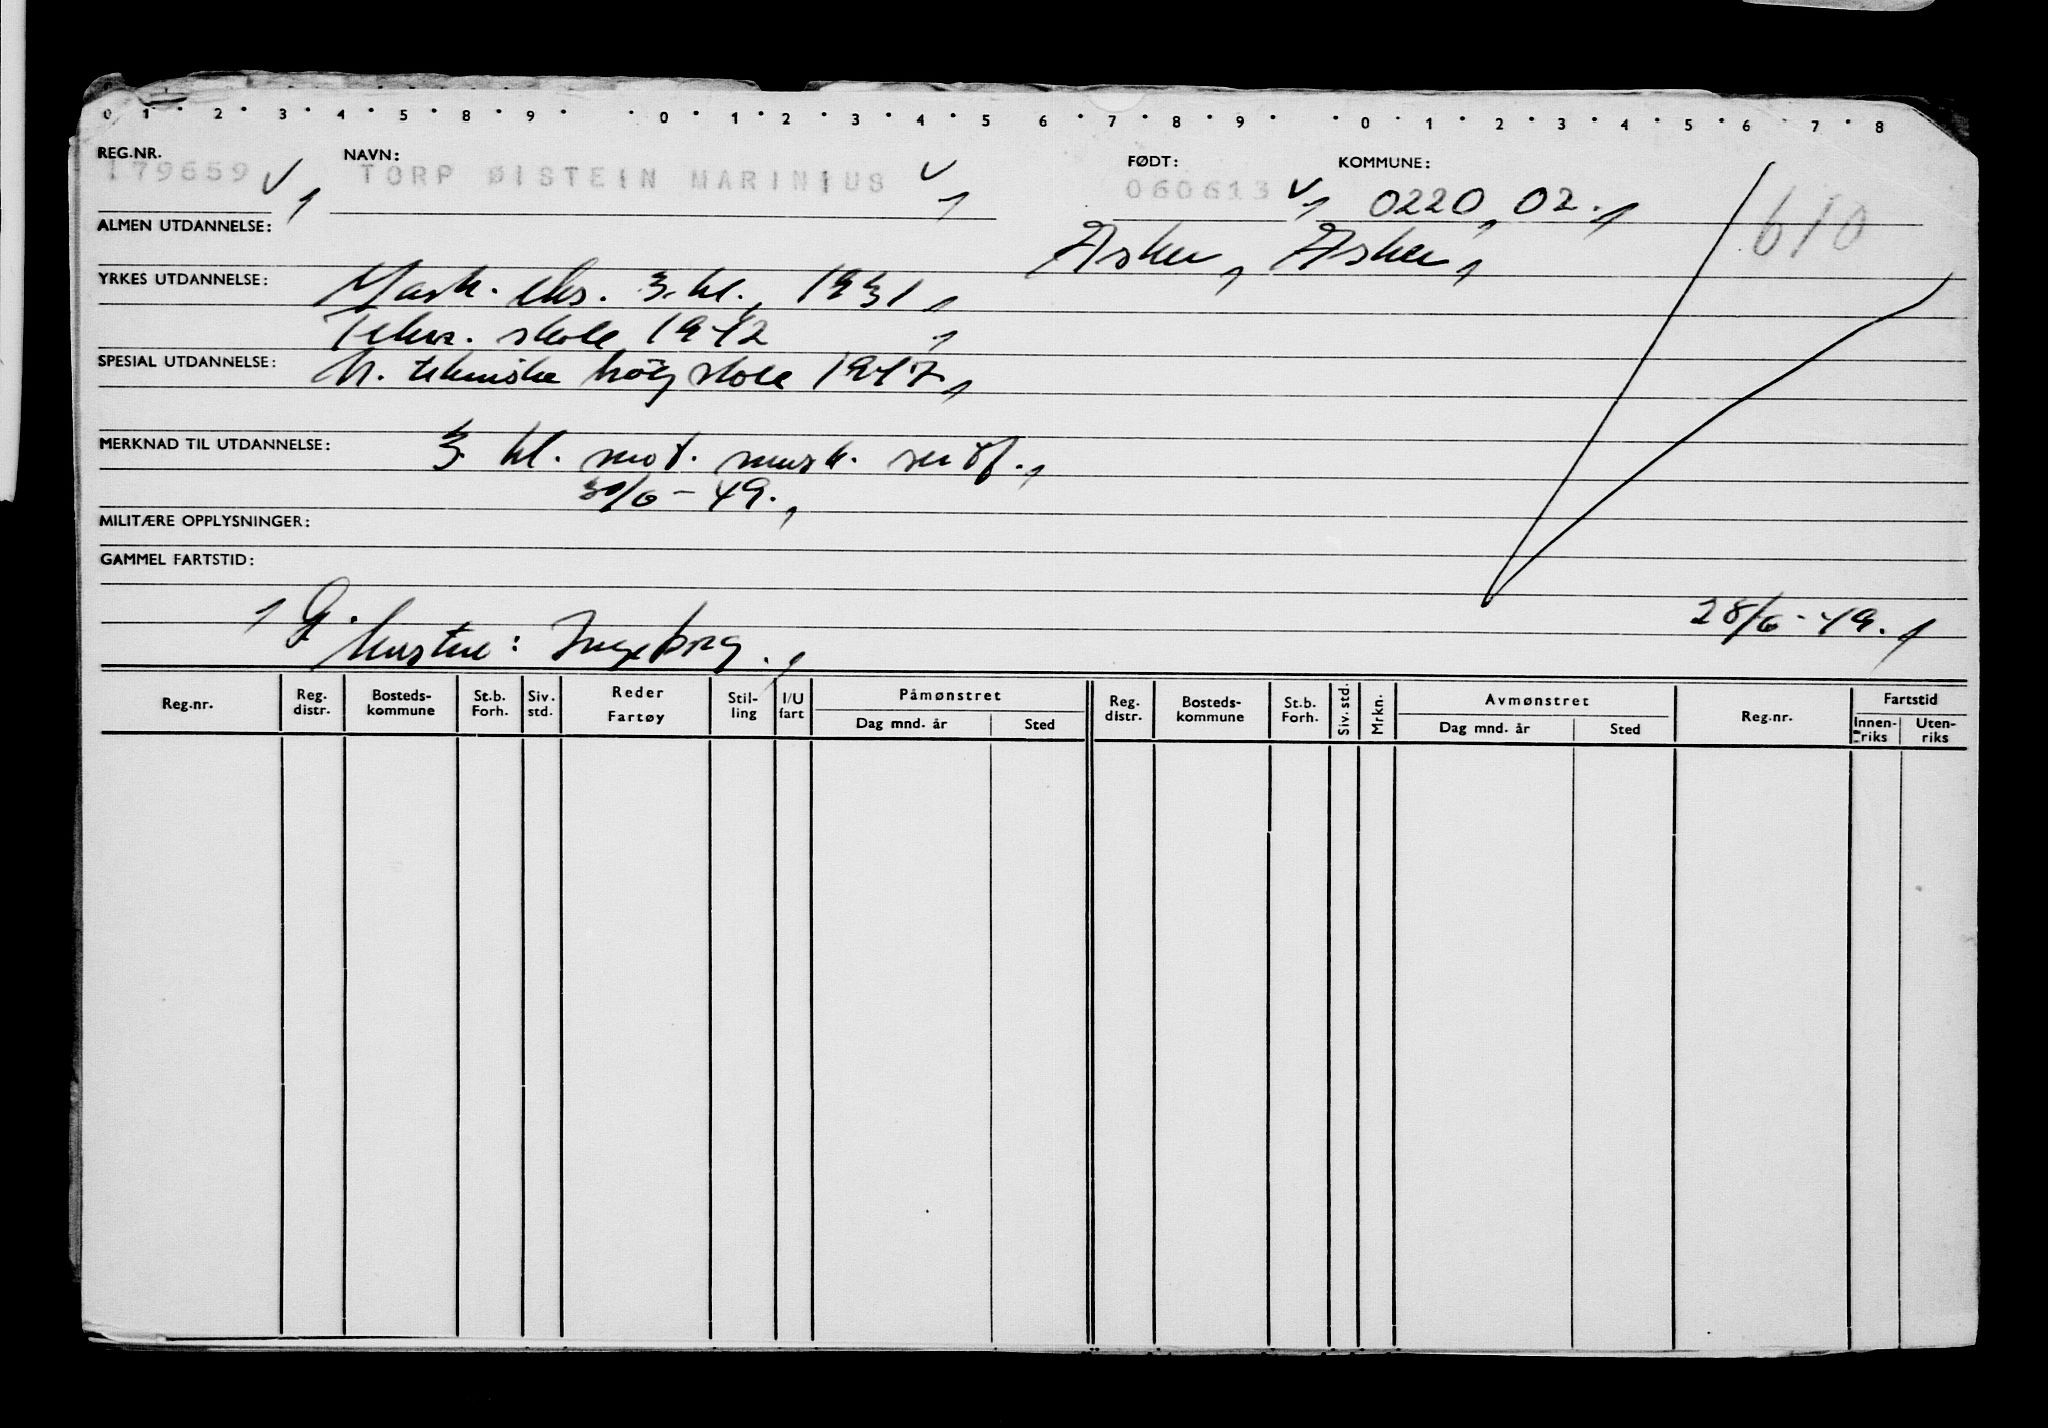 0 1 2 3 4 5 8 9 0 1 2 3 4 5 6 7 8 9 0 1 2 3 4 5 6 7 8
REG.NR. NAVN: FØDT: KOMMUNE:
179659 TORP ØISTEIN MARINIUS 060613 0220, 02. 610
ALMEN UTDANNELSE: Asker, Asker,
YRKES UTDANNELSE: Mask. eks. 3. kl., 1931,
Tekn. skole 1942,
SPESIAL UTDANNELSE: N. tekniske högskole 1947,
MERKNAD TIL UTDANNELSE: 3 kl. mot. mask. sert.,
30/6-49.,
MILITÆRE OPPLYSNINGER:
GAMMEL FARTSTID:
28/6-49.,
G. Hustru: Ingeborg.,
Reg.nr. Reg. distr. Bosteds-kommune St.b. Forh. Siv. std. Reder Fartøy Stil-ling I/U fart Påmønstret Dag mnd. år Sted Reg. distr. Bosteds-kommune St.b. Forh. Siv. std. Mrkn. Avmønstret Dag mnd. år Sted Reg.nr. Fartstid Innen-riks Uten-riks